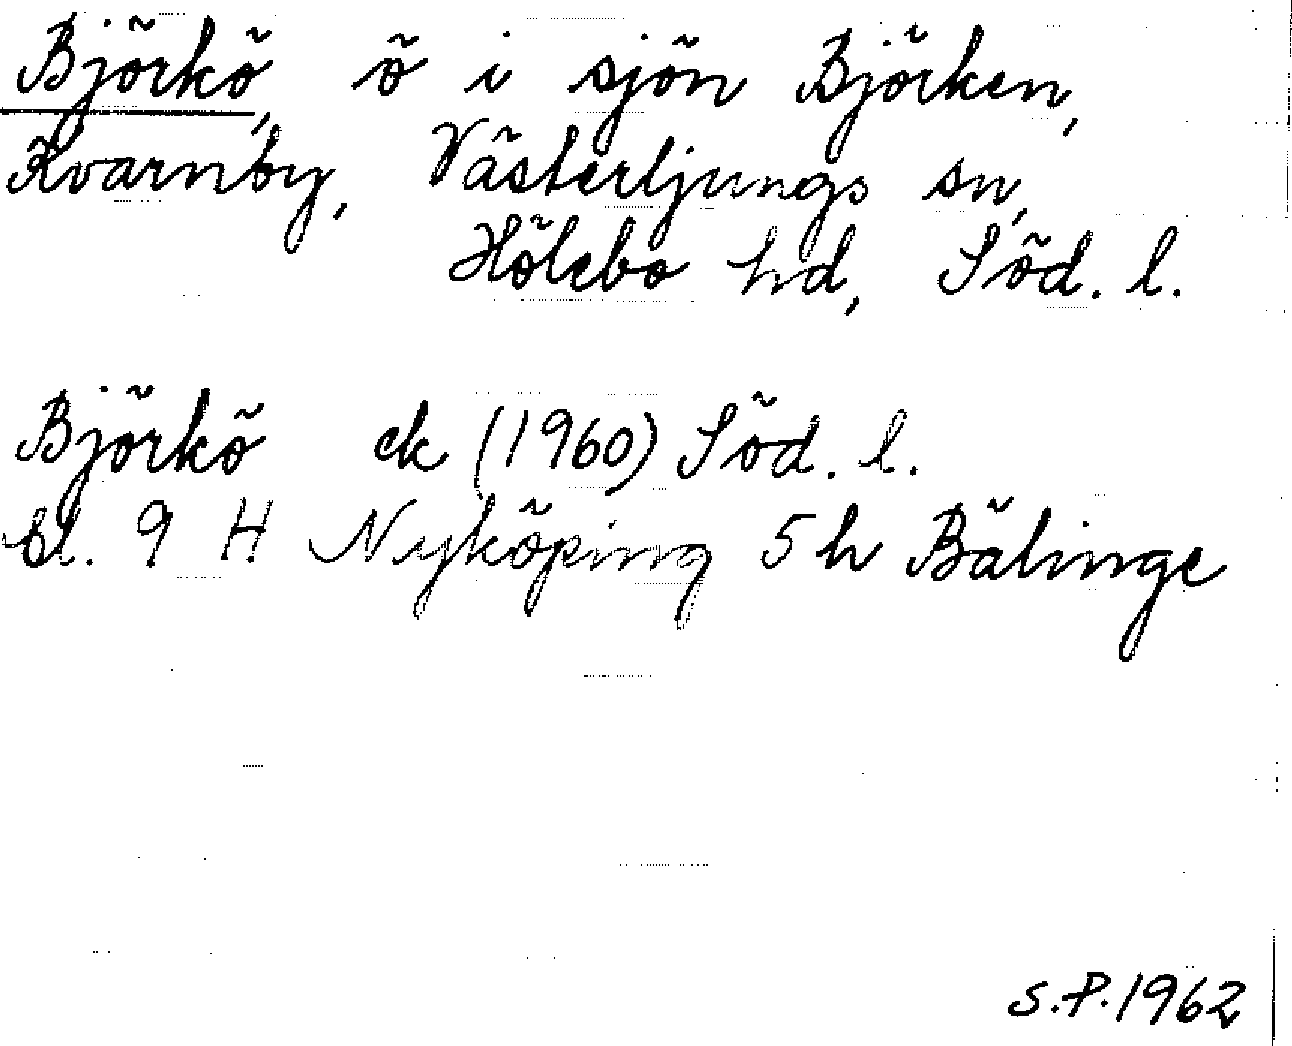 Björkö, ö i sjön Björken,
Kvarnby, Västerljungs sn,
Hölebo hd, Söd. l.
Björkö ek (1960) Söd. l.
bl. 9 H Nyköping 5 h Bälinge
S.P. 1962